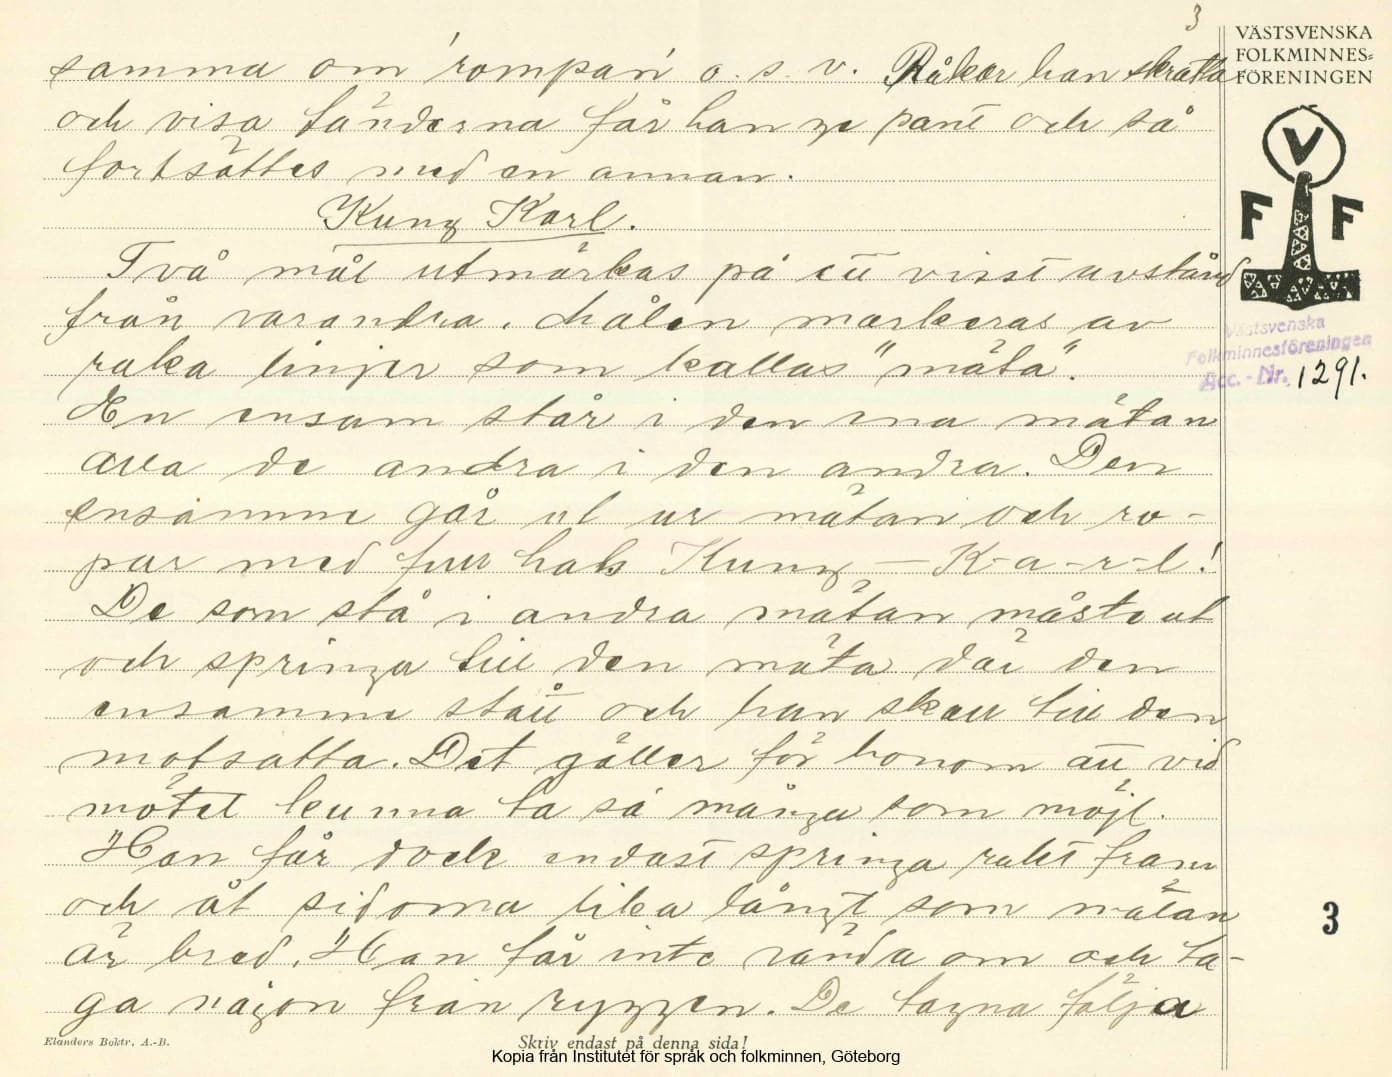 3
VÄSTSVENSKA
FOLKMINNES-
FÖRENINGEN
V
F F
Västsvenska
Folkminnesföreningen
Acc.-Nr. 1291.
samma om 'rompan' o. s. v. Råkar han skratta
och visa tänderna får han ge pant och så
fortsättes med en annan.
Kung Karl.
Två mål utmärkas på ett visst avstånd
från varandra. Målen markeras av
raka linjer som kallas "mäta".
En ensam står i den ena mätan
alla de andra i den andra. Den
ensamme går ut ur mätan och ro-
par med full hals Kung — K-a-r-l!
De som stå i andra mätan måste ut
och springa till den mäta där den
ensamme stått och han skall till den
motsatta. Det gäller för honom att vid
mötet kunna ta så många som möjl.
Han får dock endast springa rakt fram
och åt sidorna lika långt som mätan
är bred. Han får inte vända om och ta-
ga någon från ryggen. De tagna följa
3
Elanders Boktr. A.-B.
Skriv endast på denna sida!
Kopia från Institutet för språk och folkminnen, Göteborg